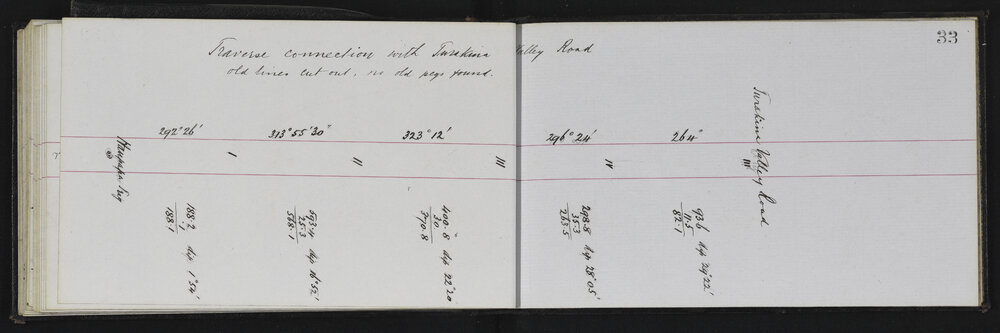 33
Traverse connection with Turakina Valley Road
old lines cut out, no old pegs found.
292° 26'
313° 55' 30"
323° 12'
296° 24'
264°
Trig
I
II
III
IV
Turakina Valley Road
III
188.2
.1
188.1
dip 1° 54'
593.4
25.3
568.1
dip 16° 52'
400.8
30.
370.8
dip 22° 20
298.8
35.3
263.5
dip 28° 05'
93.6
11.5
82.1
dip 29° 22'